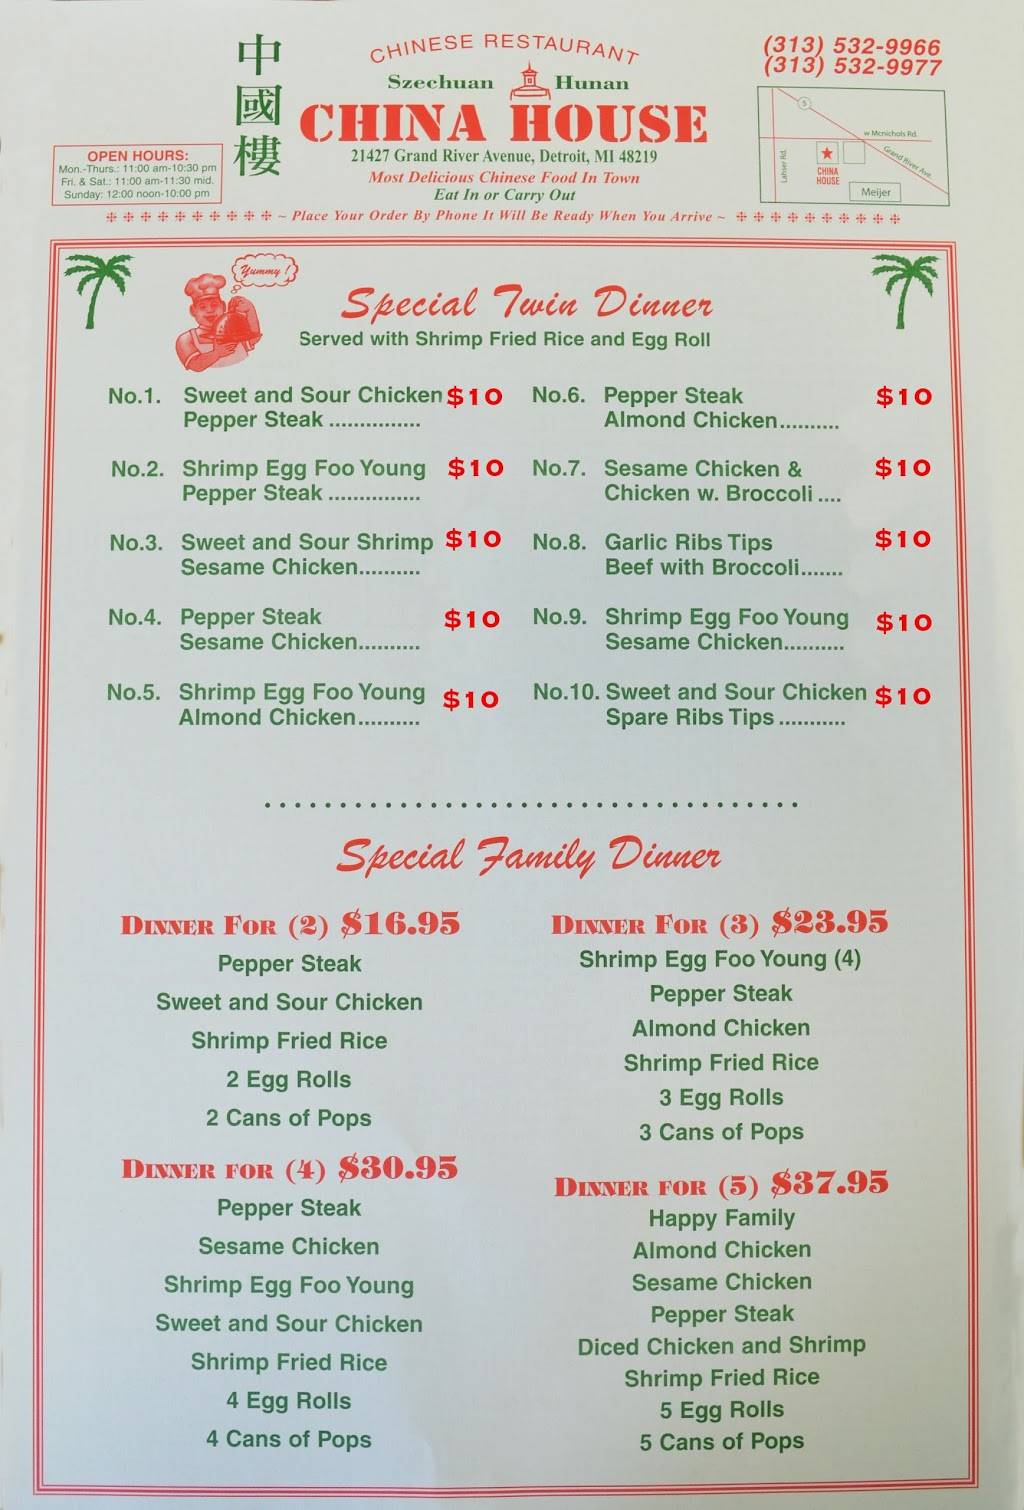 中國樓
CHINESE RESTAURANT
Szechuan Hunan
CHINA HOUSE
21427 Grand River Avenue, Detroit, MI 48219
Most Delicious Chinese Food In Town
Eat In or Carry Out
(313) 532-9966
(313) 532-9977
OPEN HOURS:
Mon.-Thurs.: 11:00 am-10:30 pm
Fri. & Sat.: 11:00 am-11:30 mid.
Sunday: 12:00 noon-10:00 pm
5
w Mcnichols Rd.
Grand River Ave.
Lahser Rd.
CHINA
HOUSE
Meijer
~ Place Your Order By Phone It Will Be Ready When You Arrive ~
Yummy !
Special Twin Dinner
Served with Shrimp Fried Rice and Egg Roll
No.1. Sweet and Sour Chicken $10
Pepper Steak ...............
No.2. Shrimp Egg Foo Young $10
Pepper Steak ...............
No.3. Sweet and Sour Shrimp $10
Sesame Chicken..........
No.4. Pepper Steak $10
Sesame Chicken..........
No.5. Shrimp Egg Foo Young $10
Almond Chicken..........
No.6. Pepper Steak $10
Almond Chicken..........
No.7. Sesame Chicken & $10
Chicken w. Broccoli ....
No.8. Garlic Ribs Tips $10
Beef with Broccoli.......
No.9. Shrimp Egg Foo Young $10
Sesame Chicken..........
No.10. Sweet and Sour Chicken $10
Spare Ribs Tips ...........
Special Family Dinner
DINNER FOR (2) $16.95
Pepper Steak
Sweet and Sour Chicken
Shrimp Fried Rice
2 Egg Rolls
2 Cans of Pops
DINNER FOR (3) $23.95
Shrimp Egg Foo Young (4)
Pepper Steak
Almond Chicken
Shrimp Fried Rice
3 Egg Rolls
3 Cans of Pops
DINNER FOR (4) $30.95
Pepper Steak
Sesame Chicken
Shrimp Egg Foo Young
Sweet and Sour Chicken
Shrimp Fried Rice
4 Egg Rolls
4 Cans of Pops
DINNER FOR (5) $37.95
Happy Family
Almond Chicken
Sesame Chicken
Pepper Steak
Diced Chicken and Shrimp
Shrimp Fried Rice
5 Egg Rolls
5 Cans of Pops